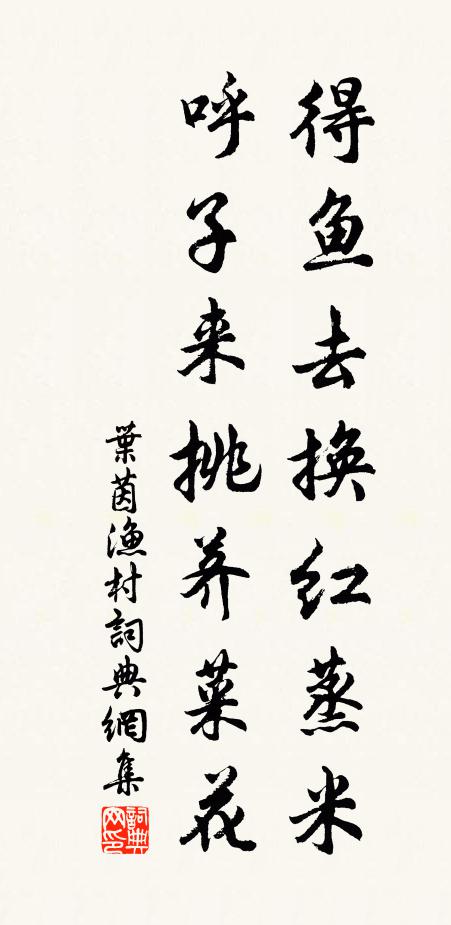 得鱼去换红蒸米
呼子来挑荠菜花
葉茵漁村詞典網集
詞典
网印